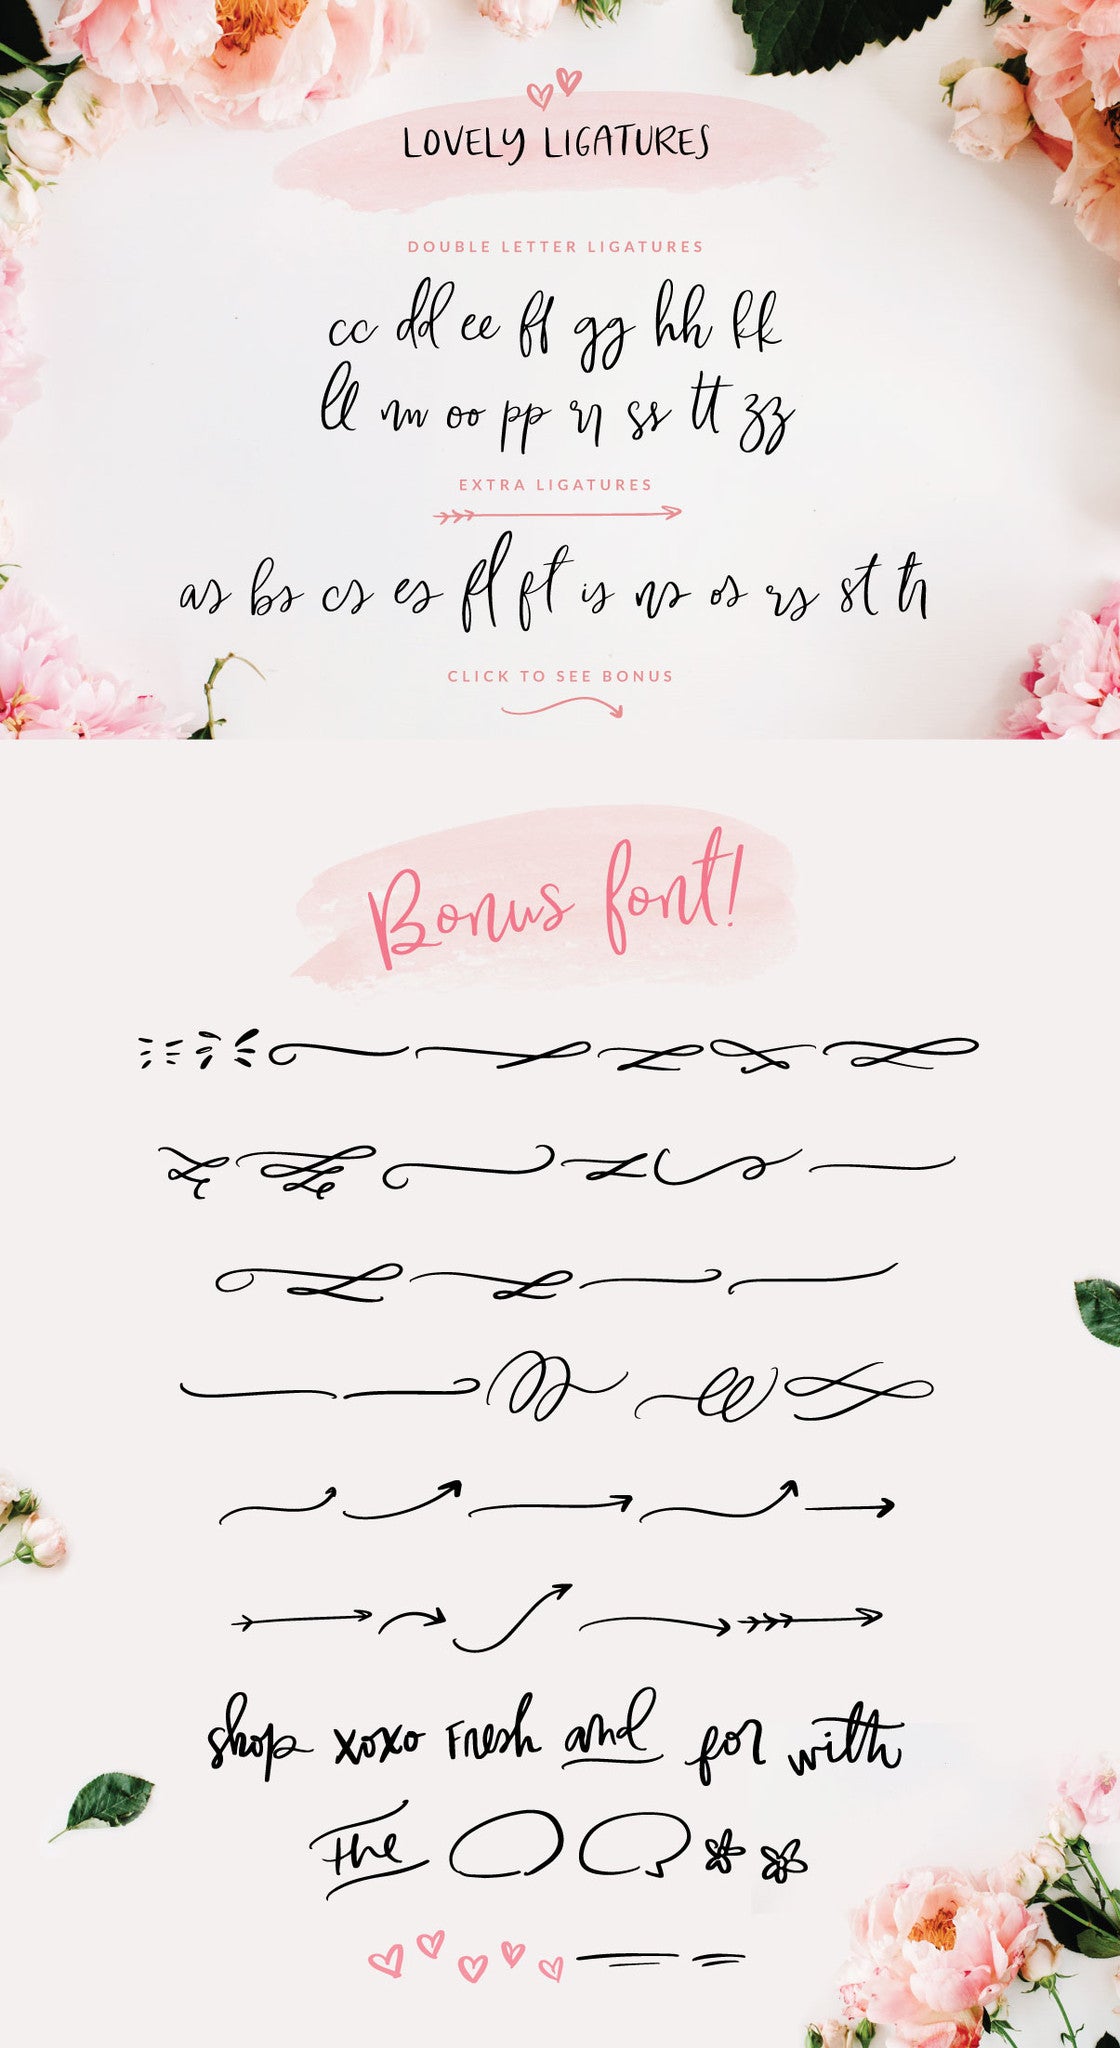 LOVELY LIGATURES
DOUBLE LETTER LIGATURES
cc dd ee ff gg hh kk
ll nn oo pp rr ss tt zz
EXTRA LIGATURES
as bs cs es fl ft is ns os rs st th
CLICK TO SEE BONUS
Bonus font!
shop xoxo Fresh and for with
The